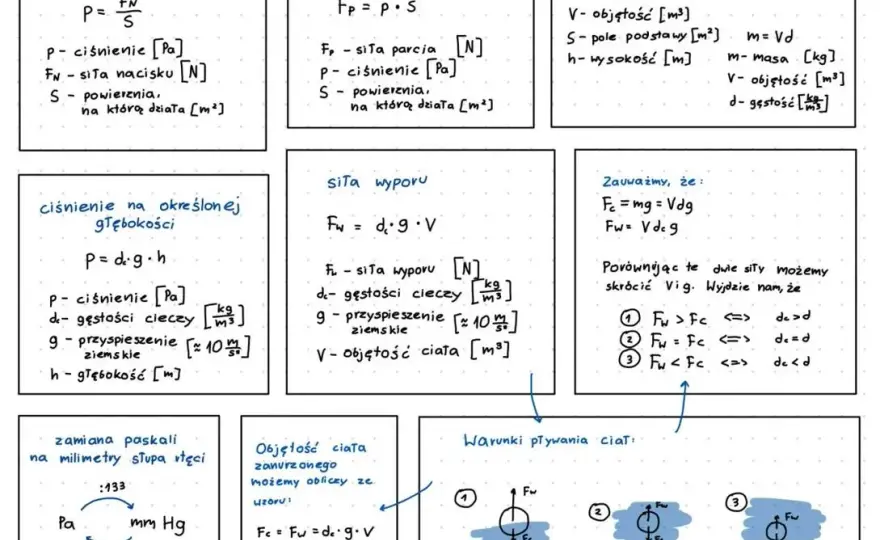 P = FN / S
p - ciśnienie [Pa]
FN - siła nacisku [N]
S - powierznia,
na którą działa [m²]
Fp = p · S
Fp - siła parcia [N]
p - ciśnienie [Pa]
S - powierznia,
na którą działa [m²]
V - objętość [m³]
S - pole podstawy [m²]
h - wysokość [m]
m = Vd
m - masa [kg]
V - objętość [m³]
d - gęstość [kg/m³]
ciśnienie na określonej
głębokości
p = dc · g · h
p - ciśnienie [Pa]
dc - gęstości cieczy [kg/m³]
g - przyspieszenie [≈ 10 m/s²]
ziemskie
h - głębokość [m]
siła wyporu
Fw = dc · g · V
Fw - siła wyporu [N]
dc - gęstości cieczy [kg/m³]
g - przyspieszenie [≈ 10 m/s²]
ziemskie
V - objętość ciała [m³]
Zauważmy, że:
Fc = mg = Vdg
Fw = Vdcg
Porównując te dwie siły możemy
skrócić V i g. Wyjdzie nam, że
1 Fw > Fc <=> dc > d
2 Fw = Fc <=> dc = d
3 Fw < Fc <=> dc < d
zamiana paskali
na milimetry słupa rtęci
:133
Pa mm Hg
Objętość ciała
zanurzonego
możemy obliczy ze
wzoru:
Fc = Fw = dc · g · V
Warunki pływania ciał:
1 Fw
Fc
2 Fw
Fc
3 Fw